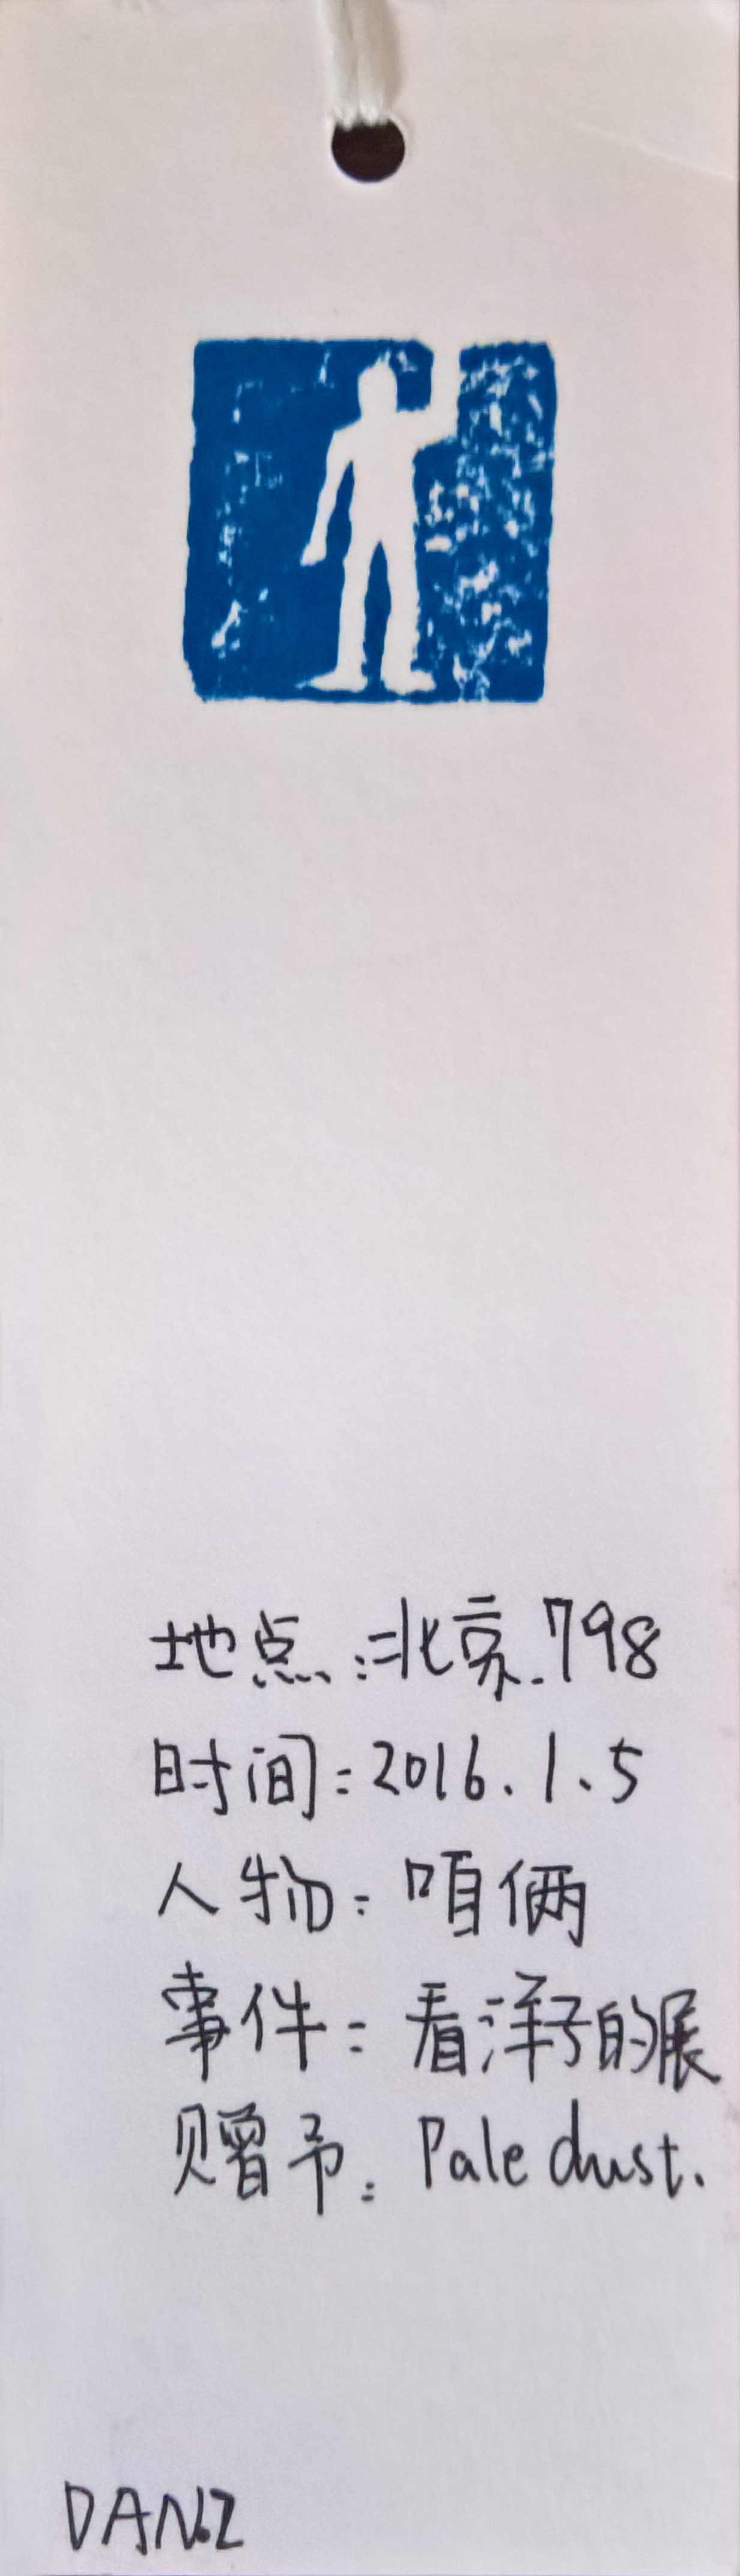 地点：北京.798
时间：2016.1.5
人物：咱俩
事件：看洋子的展
赠予：Pale dust.
DANZ